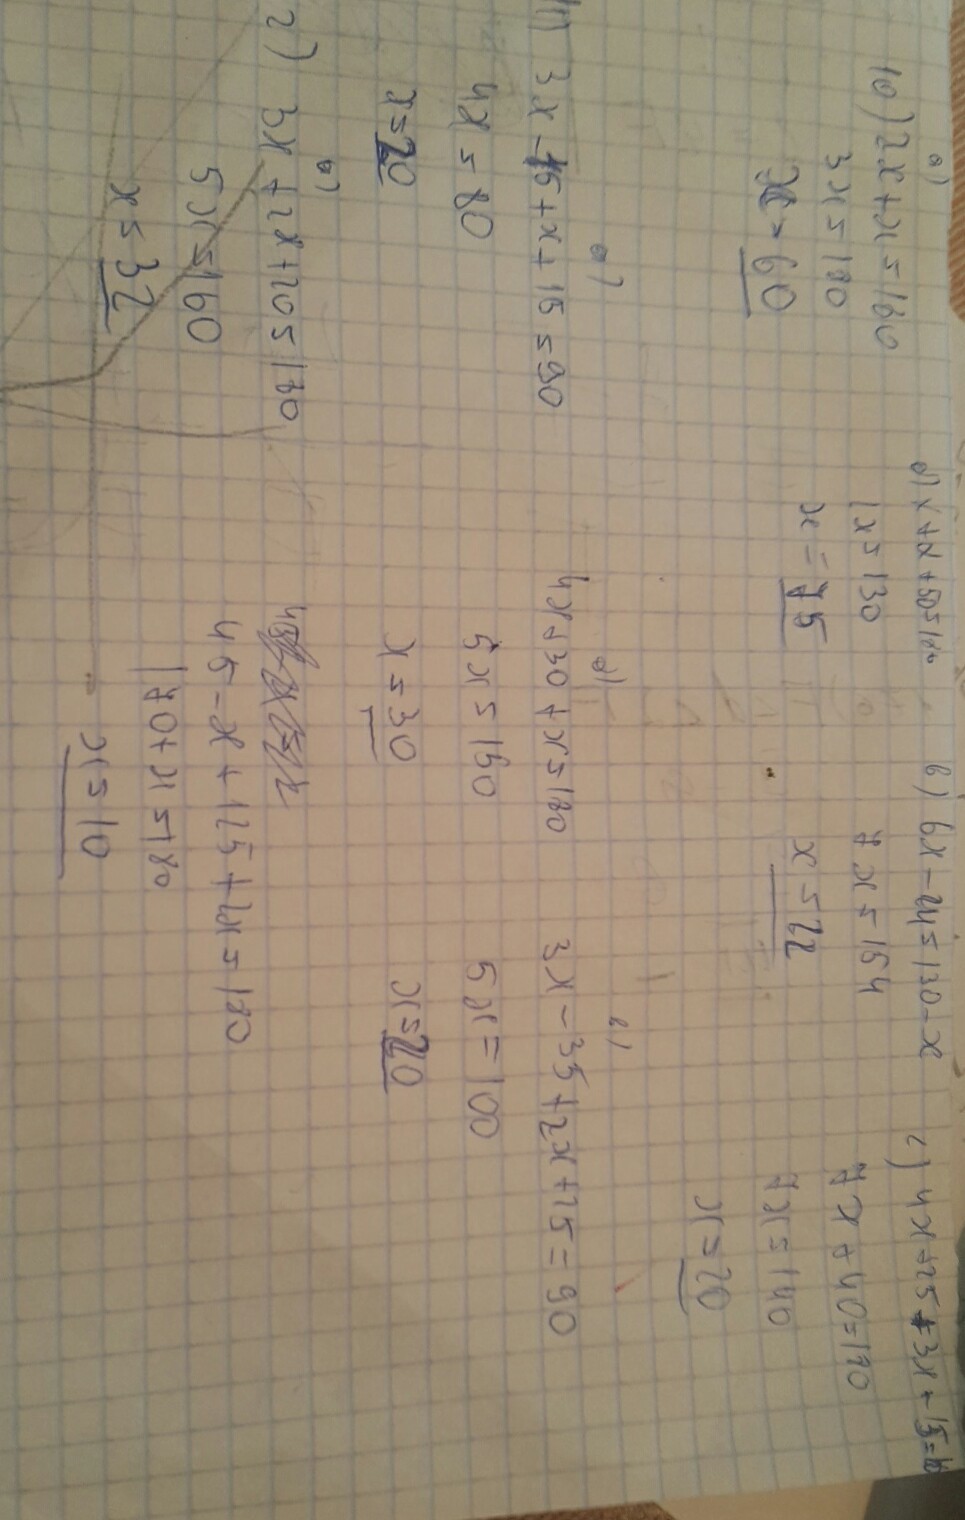 10) а) 2x+x=180
3x=180
x=60
б) x+x+50=180
x=130
x=75
в) 6x-24=130-x
7x=154
x=22
г) 4x+25+3x+15=180
7x+40=180
7x=140
x=20
11) а) 3x-45+x+15=90
4x=80
x=20
б) 4x+30+x=180
5x=150
x=30
в) 3x-35+2x+25=90
5x=100
x=20
2) а) 3x+2x+20=180
5x=160
x=32
45-x+125+2x=180
170+x=180
x=10